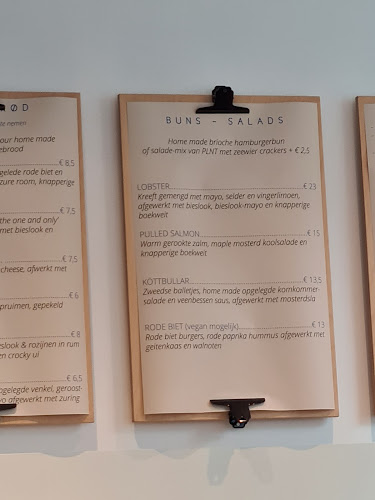 ØD
te nemen
our home made
ebrood
€ 8,5
gelede rode biet en
zure room, knapperige
€ 7,5
the one and only'
met bieslook en
€ 7,5
cheese, afwerkt met
€ 6
pruimen, gepekeld
€ 8
slook & rozijnen in rum
en cracky ui
€ 6,5
ngelegde venkel, geroost-
vo afgewerkt met zuring
BUNS - SALADS
Home made brioche hamburgerbun
of salade-mix van PLNT met zeewier crackers + € 2,5
LOBSTER € 23
Kreeft gemengd met mayo, selder en vingerlimoen,
afgewerkt met bieslook, bieslook-mayo en knapperige
boekweit
PULLED SALMON € 15
Warm gerookte zalm, maple mosterd koolsalade en
knapperige boekweit
KÖTTBULLAR € 13,5
Zweedse balletjes, home made opgelegde komkommer-
salade en veenbessen saus, afgewerkt met mosterdsla
RODE BIET (vegan mogelijk) € 13
Rode biet burgers, rode paprika hummus afgewerkt met
geitenkaas en walnoten